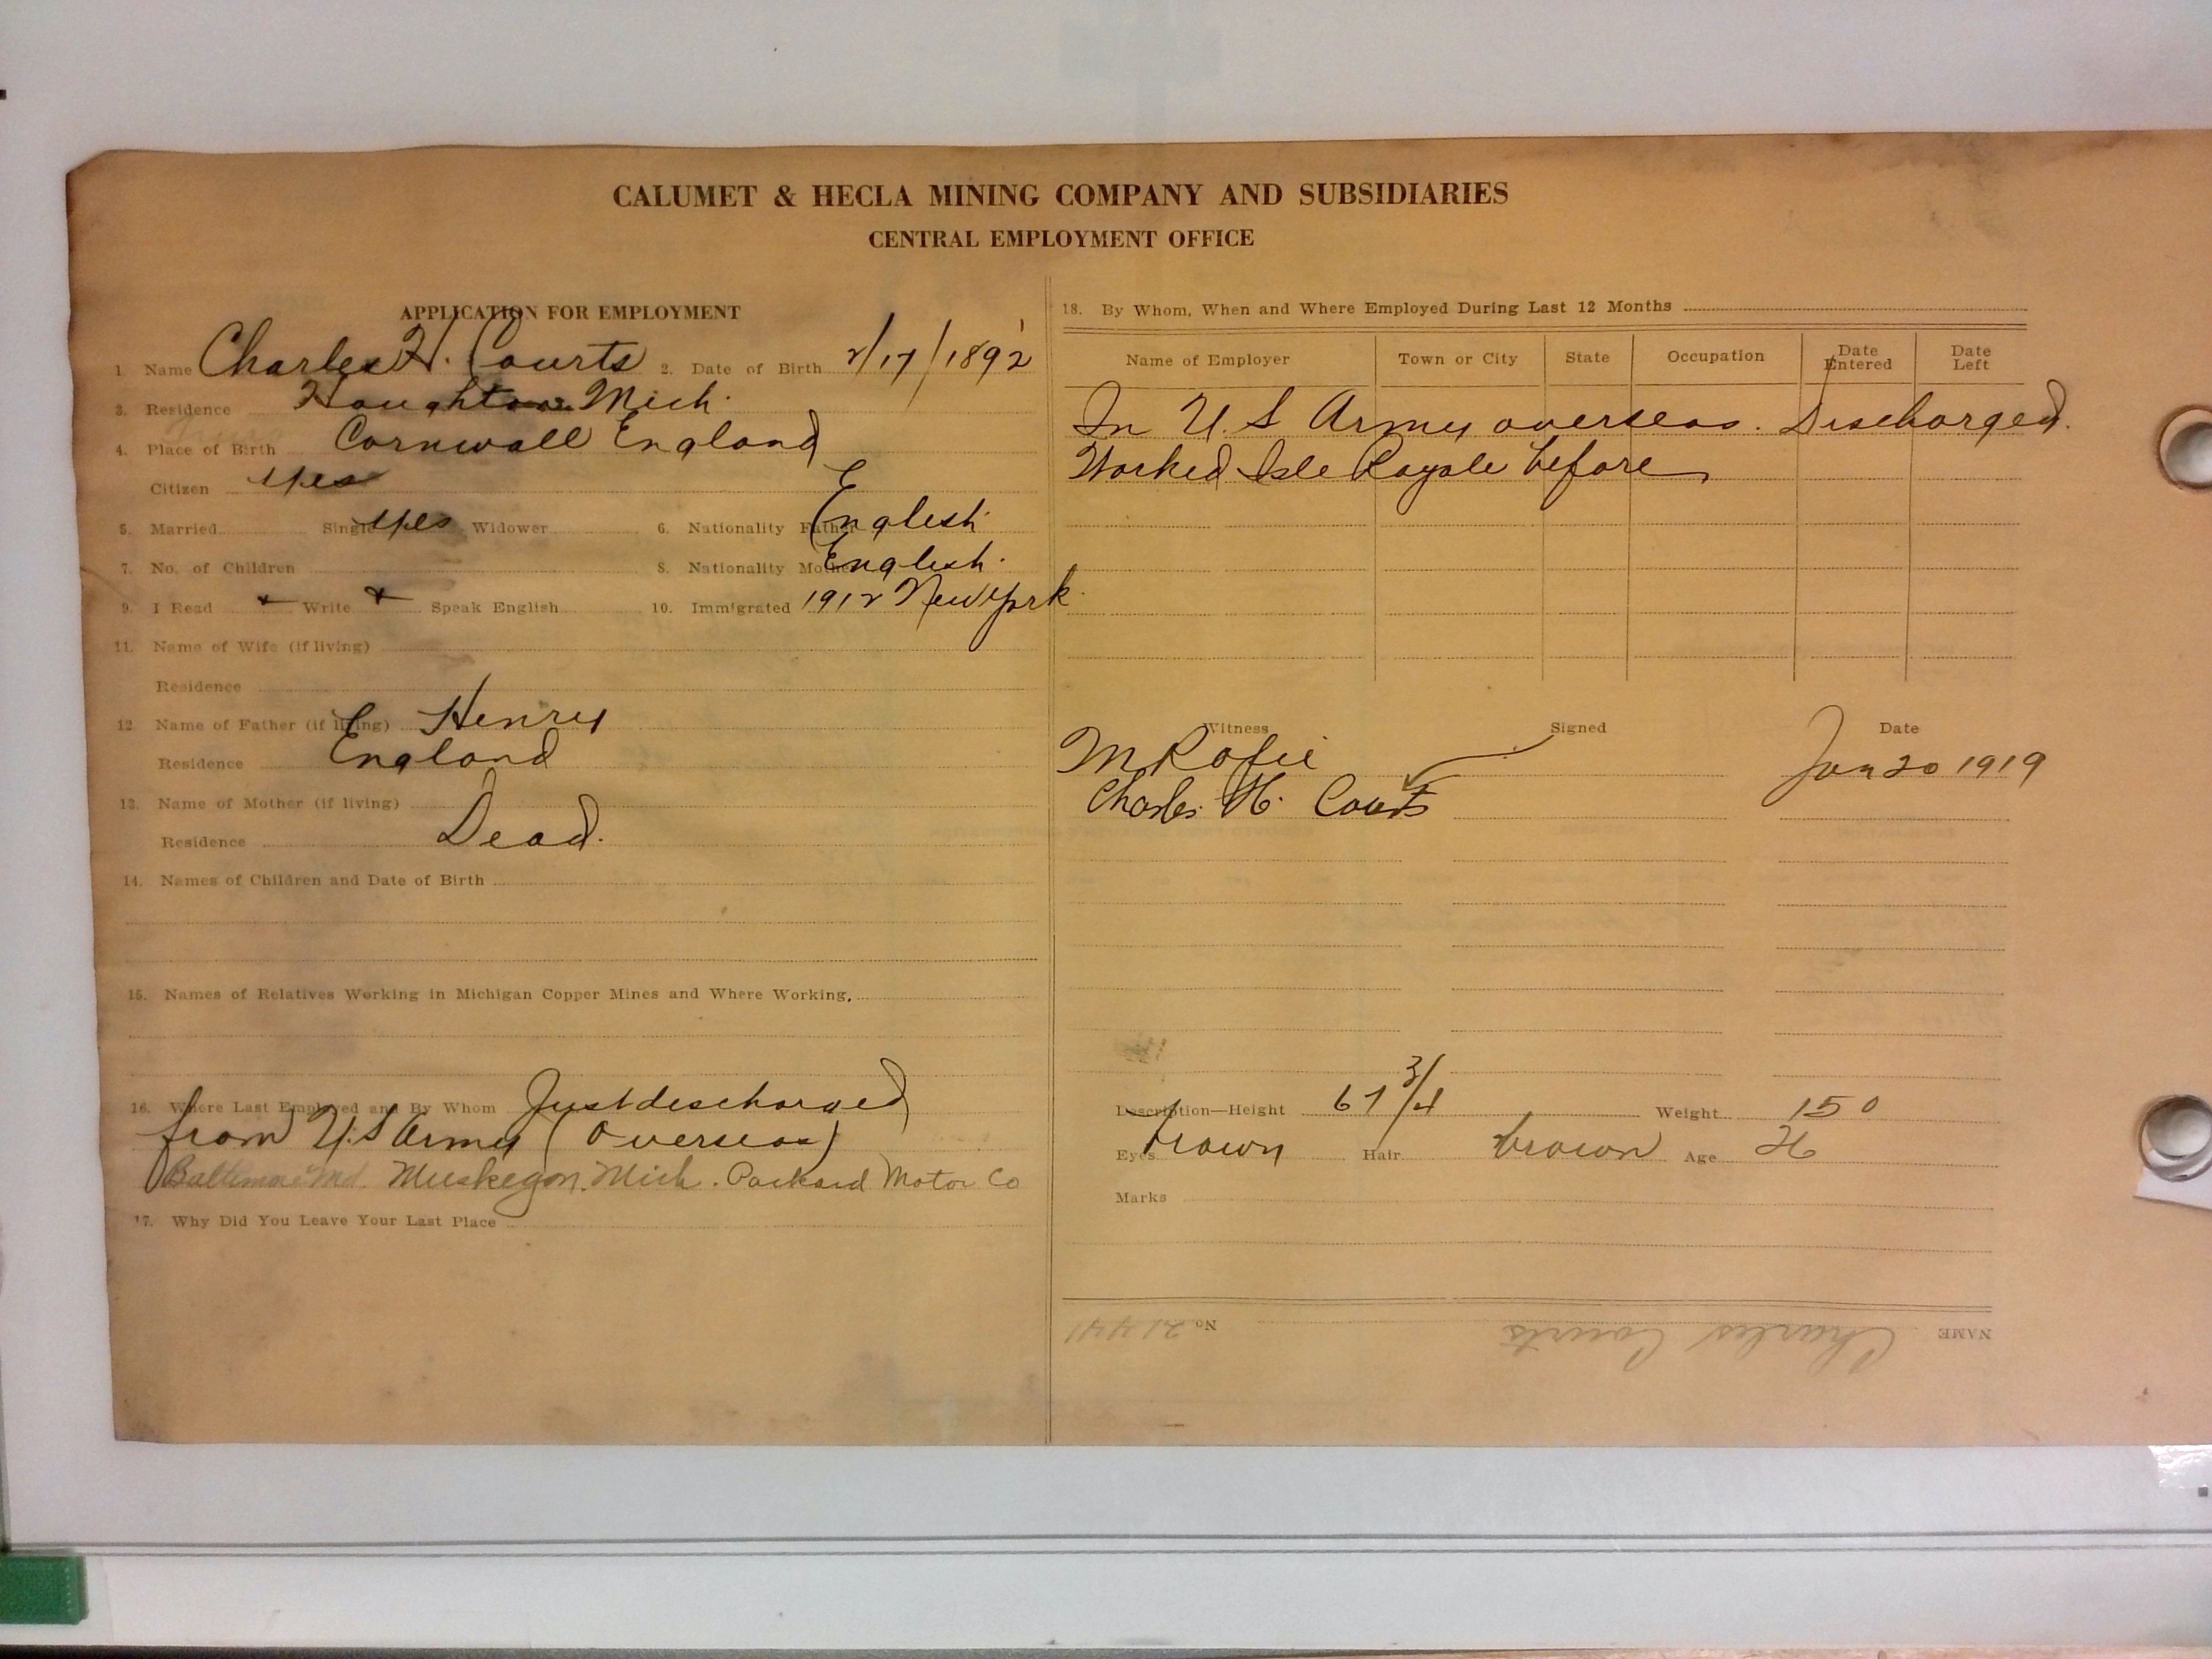 CALUMET & HECLA MINING COMPANY AND SUBSIDIARIES
CENTRAL EMPLOYMENT OFFICE
APPLICATION FOR EMPLOYMENT
1. Name Charles H. Courts 2. Date of Birth 2/17/1892
3. Residence Houghton Mich.
4. Place of Birth Cornwall England
Citizen yes
5. Married Single yes Widower 6. Nationality Father English
7. No. of Children 8. Nationality Mother English.
9. I Read x Write x Speak English 10. Immigrated 1912 New York.
11. Name of Wife (if living)
Residence
12. Name of Father (if living) Henry
Residence England
13. Name of Mother (if living)
Residence Dead.
14. Names of Children and Date of Birth
15. Names of Relatives Working in Michigan Copper Mines and Where Working.
16. Where Last Employed and By Whom Just discharged
from U.S Army (Overseas)
Baltimore Md. Muskegon. Mich. Packard Motor Co
17. Why Did You Leave Your Last Place
18. By Whom, When and Where Employed During Last 12 Months
Name of Employer Town or City State Occupation Date Entered Date Left
In U.S Army overseas. Discharged.
Worked Isle Royale before
Witness Signed Date
M Jan 20 1919
Charles H. Courts
Description—Height 67 3/4 Weight 150
Eyes brown Hair brown Age 26
Marks
NAME Charles Courts No. 21441